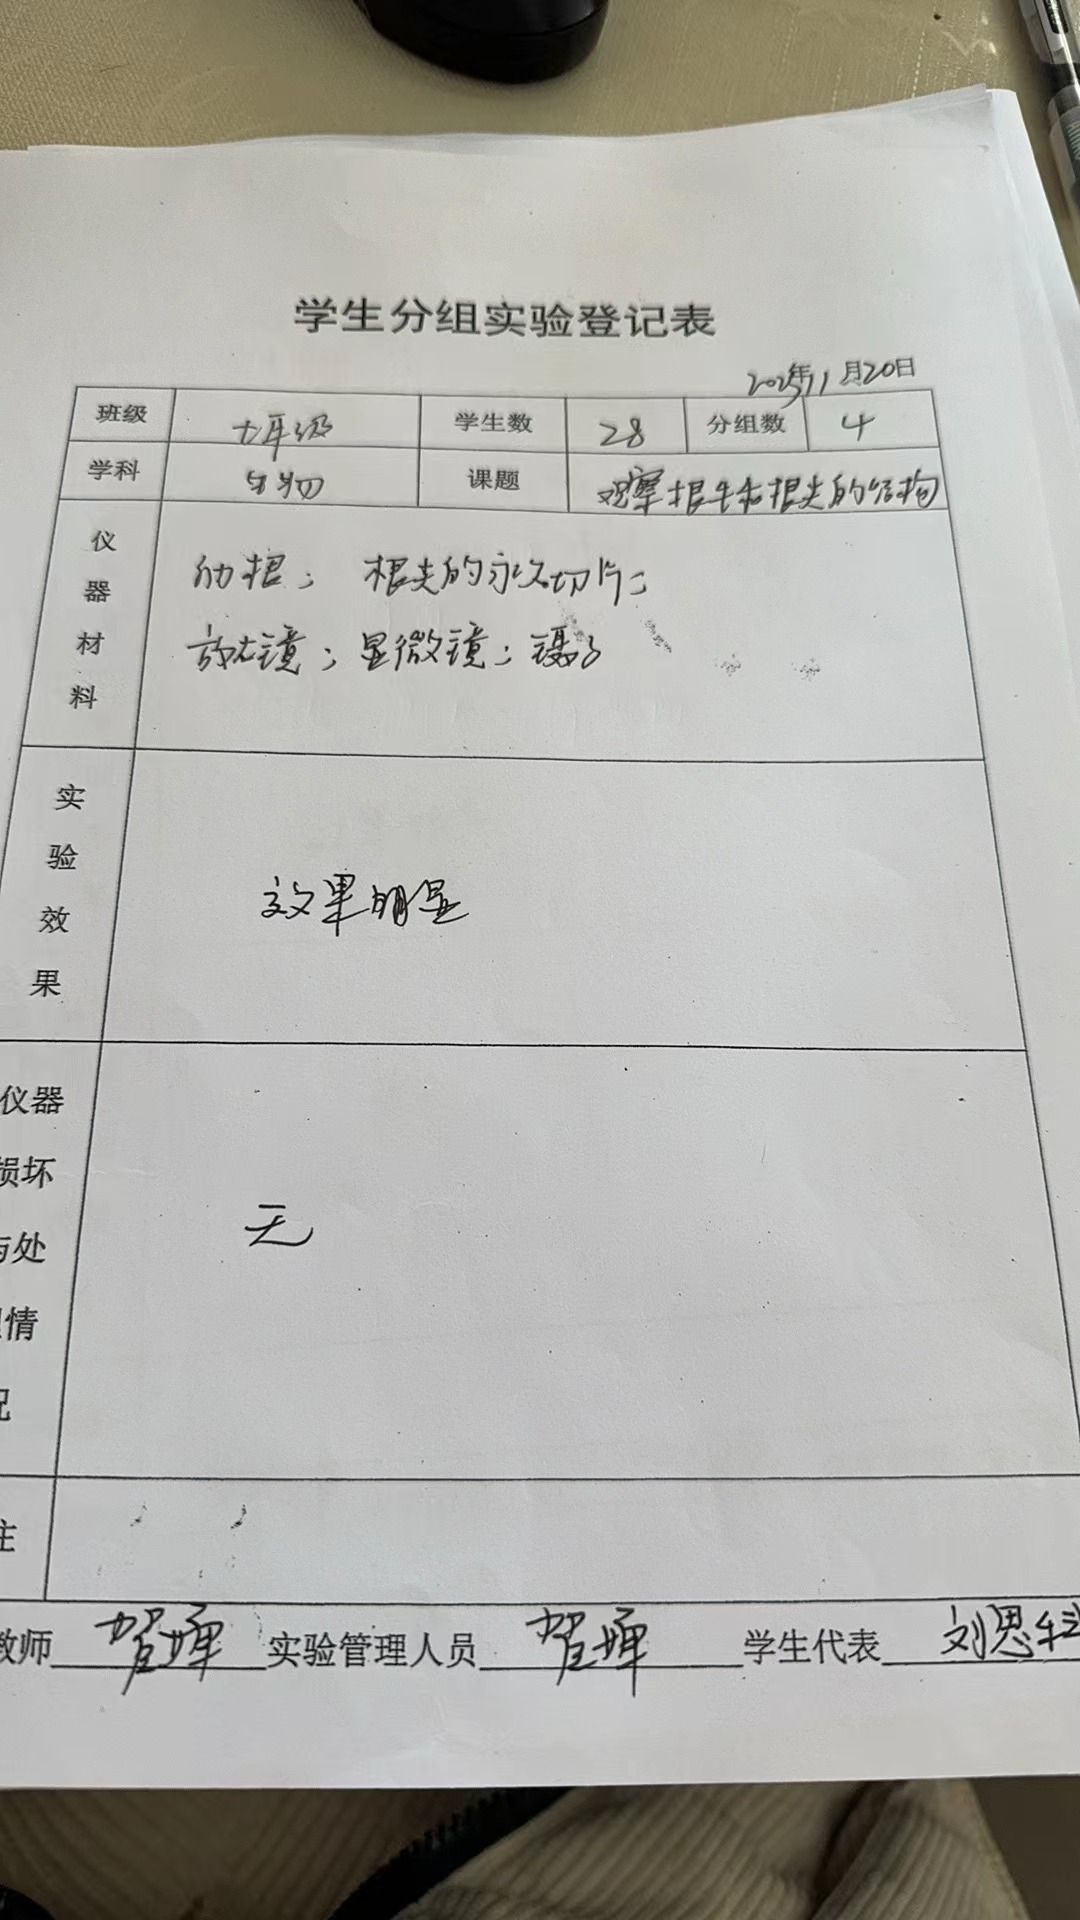 学生分组实验登记表
2025年11月20日
班级 七年级 学生数 28 分组数 4
学科 生物 课题 观察根毛和根尖的结构
仪器材料
幼根； 根尖的永久切片；
放大镜；显微镜；镊子
实验效果
效果明显
仪器
损坏
与处
理情
况
无
注
教师 贺 实验管理人员 贺 学生代表 刘思